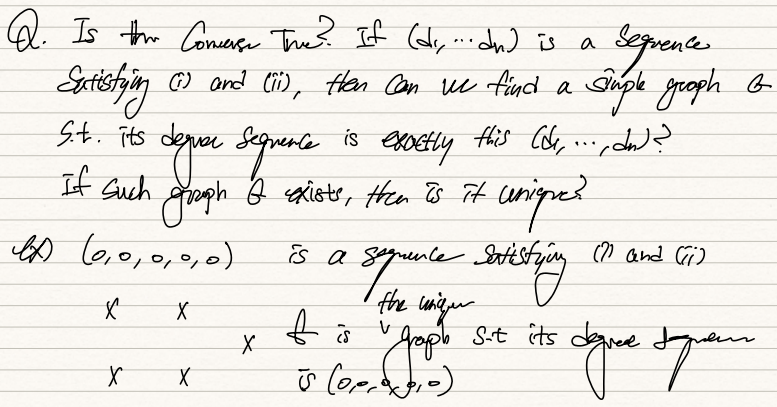 Q. Is the Converse True? If (d₁, ⋯ dₙ) is a sequence
Satisfying (i) and (ii), then can we find a simple graph G
S.t. its degree sequence is exactly this (d₁, ⋯, dₙ)?
If such graph G exists, then is it unique?
ex) (0, 0, 0, 0, 0) is a sequence satisfying (i) and (ii)
x x the unique
x G is ∨ graph s.t its degree sequence
x x is (0, 0, 0, 0, 0)